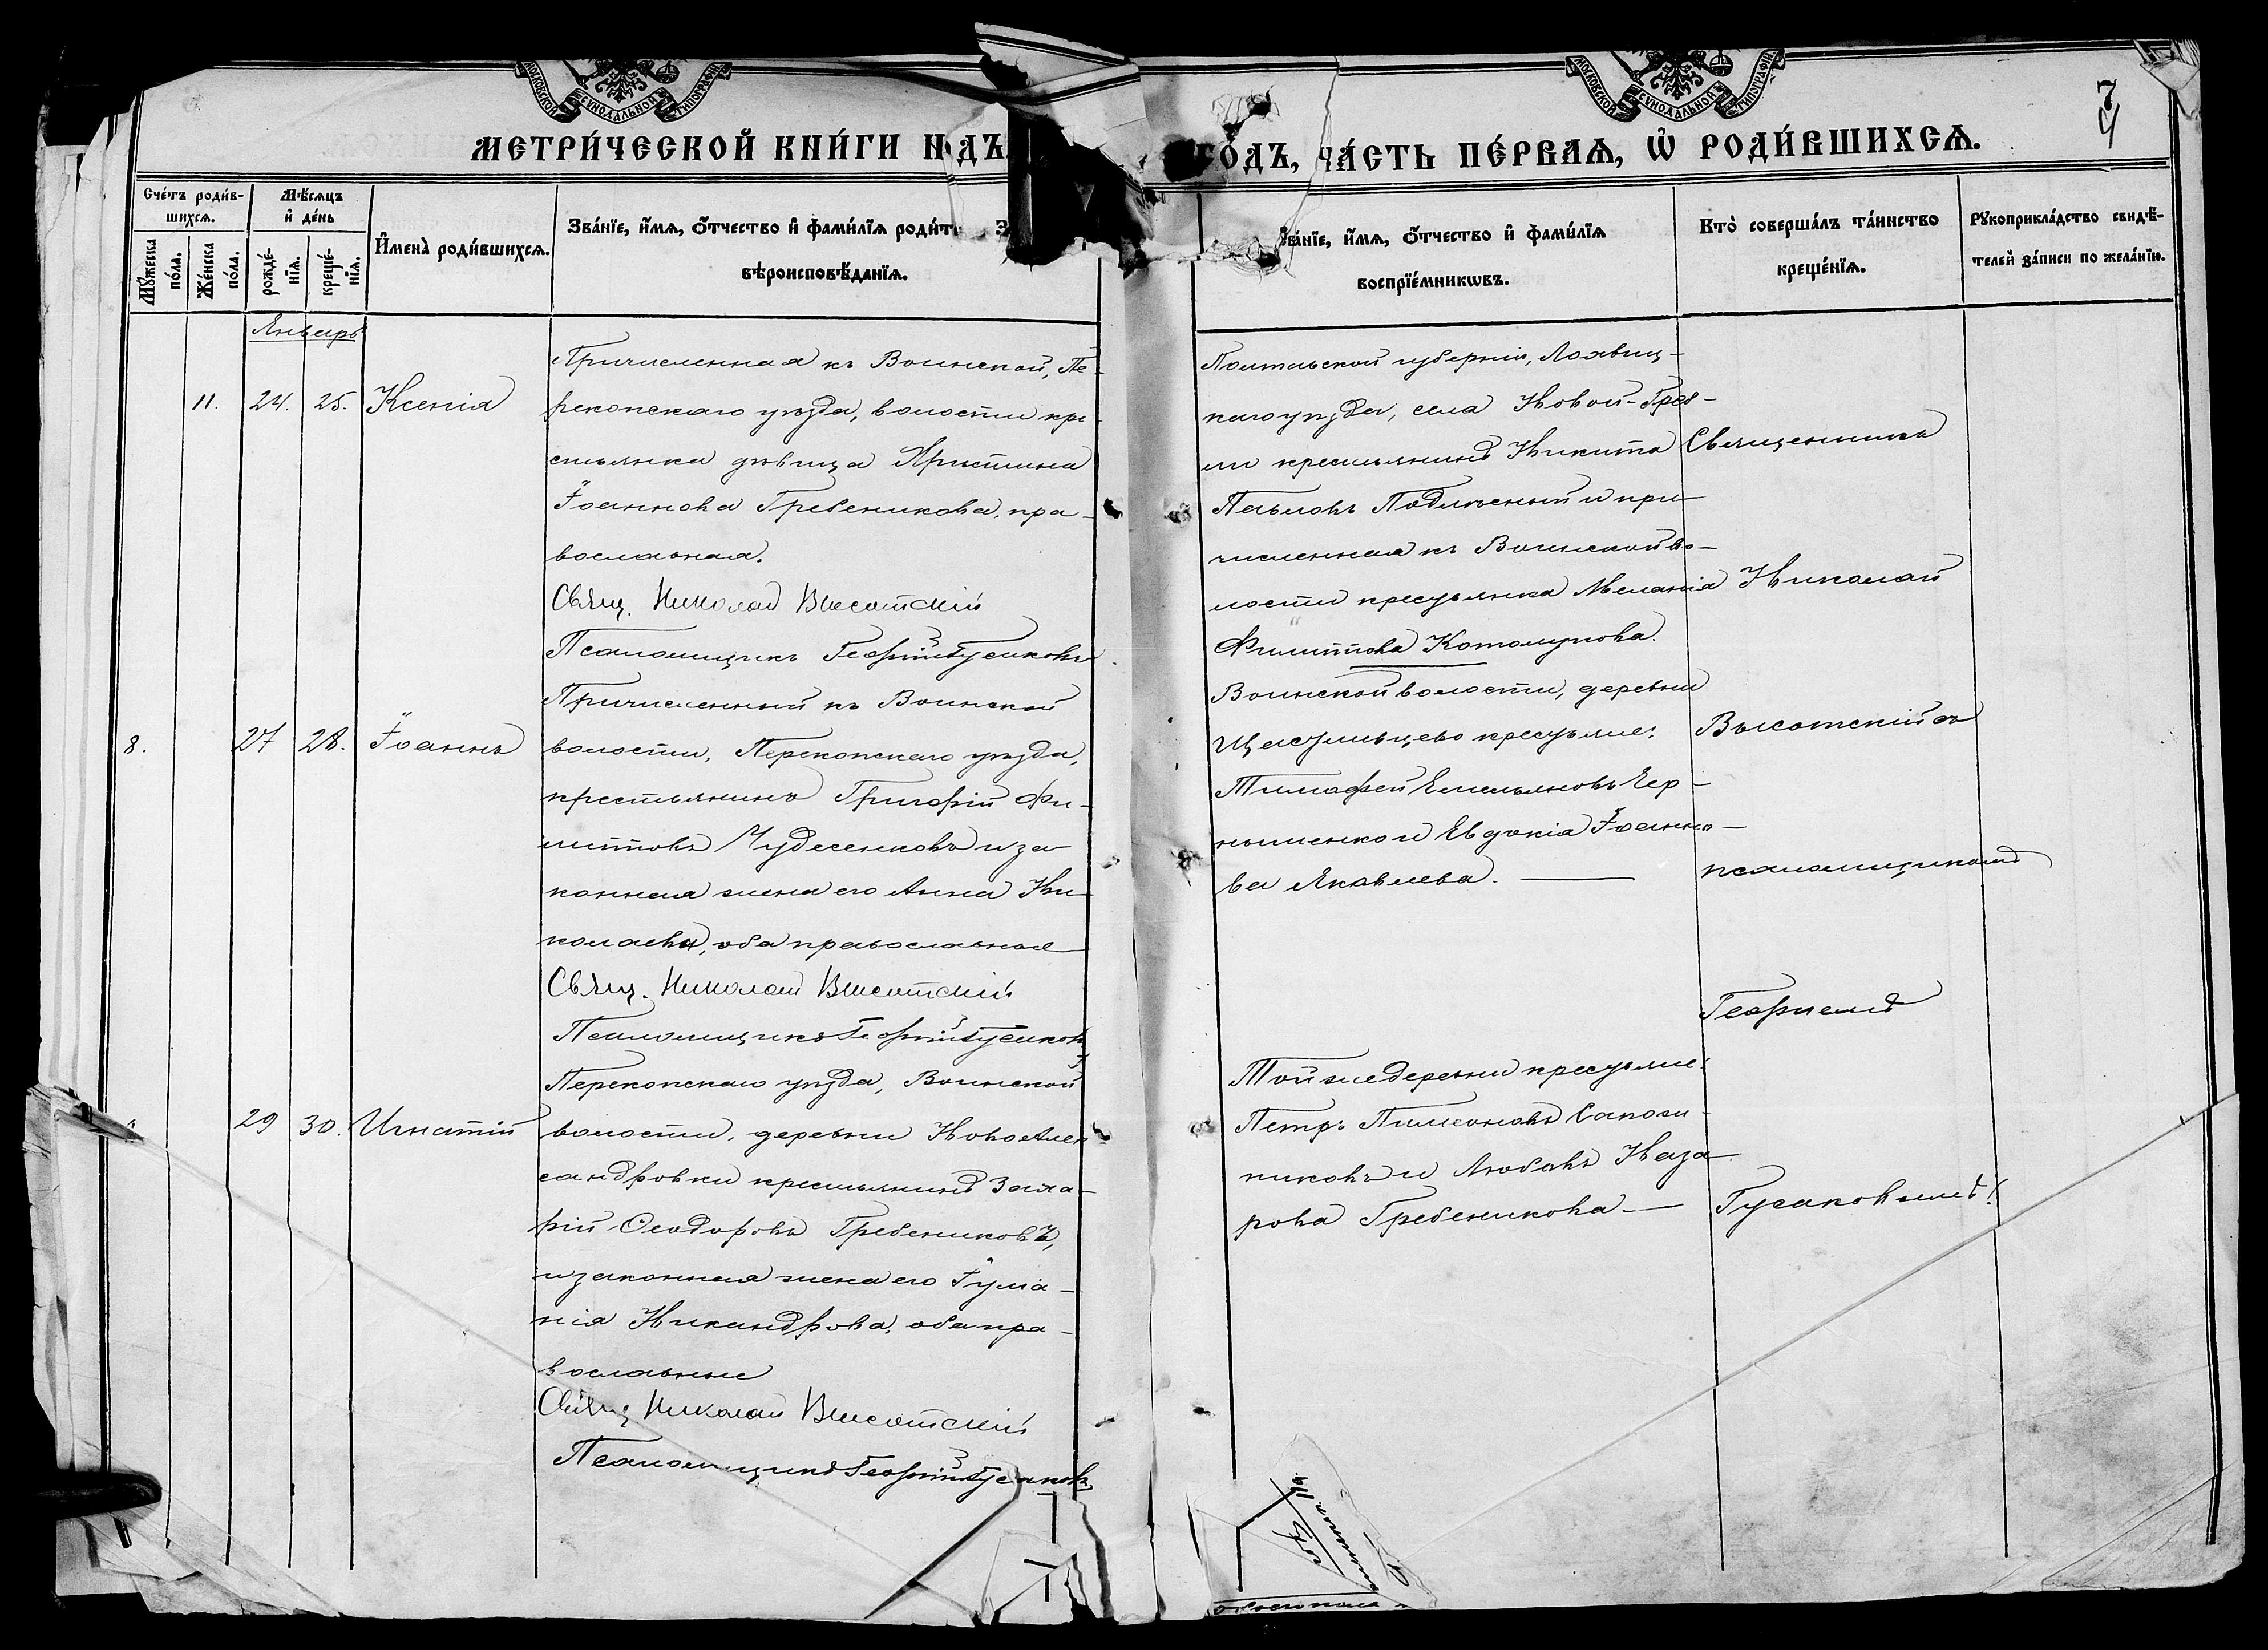 МОСКОВСКОЙ СѴНОДАЛЬНОЙ ТИПОГРАФІИ
МОСКОВСКОЙ СѴНОДАЛЬНОЙ ТИПОГРАФІИ
7
МЕТРИ́ЧЕСКОЙ КНИ́ГИ Н
ГО́ДЪ, ЧА́СТЬ ПЕ́РВАѦ, Ѡ҆ РОДИ́ВШИХСѦ.
Сче́тъ роди́в-
шихсѧ.
Мꙋ́жеска по́ла.
Же́нска по́ла.
Мѣ́сѧцъ
и҆ де́нь
рожде́-нїѧ.
креще́-нїѧ.
И҆мена̀ роди́вшихсѧ.
Зва́нїе, и҆́мѧ, ѻ҆́тчество и҆ фами́лїѧ роди́т
вѣроисповѣ́данїѧ.
Зва́нїе, и҆́мѧ, ѻ҆́тчество и҆ фами́лїѧ
воспрїе́мникѡвъ.
Кто̀ соверша́лъ та́инство
креще́нїѧ.
Рꙋкоприкла́дство свидѣ́-
телей за́писи по жела́нїю.
Январь
11. 24. 25. Ксенія
Причисленная къ Воинской, Пе-
рекопскаго уѣзда, волости кре-
стьянка дѣвица Христина
Іоаннова Гребеникова, пра-
вославная.
Свящ. Николай Высотскій
Псаломщикъ Георгій Гусаковъ
Полтавской губерніи, Лохвиц-
каго уѣзда, села Новой-Греб-
ли крестьянинъ Никита
Павловъ и при-
численная къ Воинской во-
лости крестьянка Меланія
Филиппова
8. 27 28. Іоаннъ
Причисленный къ Воинской
волости, Перекопскаго уѣзда,
крестьянинъ Григорій Фи-
липповъ Чудесенковъ и за-
конная жена его Анна Ни-
колаева, оба православные
Свящ. Николай Высотскій
Псаломщикъ Георгій Гусаковъ
Воинской волости, деревни
крестьяне:
Тимофей Емельяновъ Чер-
ныменко и Евдокія Іоанно-
ва Яковлева.
29 30. Игнатій
Перекопскаго уѣзда, Воинской
волости, деревни Новоалек
сандровки крестьянинъ Заха-
рій Ѳеодоровъ Гребениковъ,
и законная жена его Іулiа-
нія Никандрова, оба пра-
вославные
Свящ. Николай Высотскій
Псаломщикъ Георгій Гусаковъ
Той же деревни крестьяне:
Петръ Пимоновъ Сапож-
никовъ и Любовь Наза-
рова Гребеникова
Священникъ
Николай
Высотскій съ
псаломщикомъ
Георгіемъ
Гусаковымъ